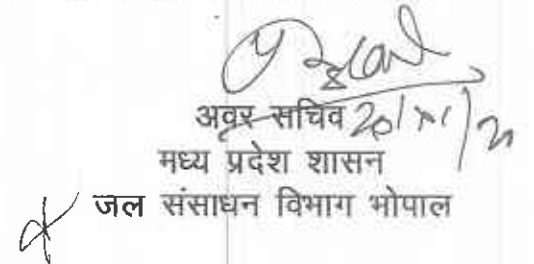 अवर सचिव
मध्य प्रदेश शासन
जल संसाधन विभाग भोपाल